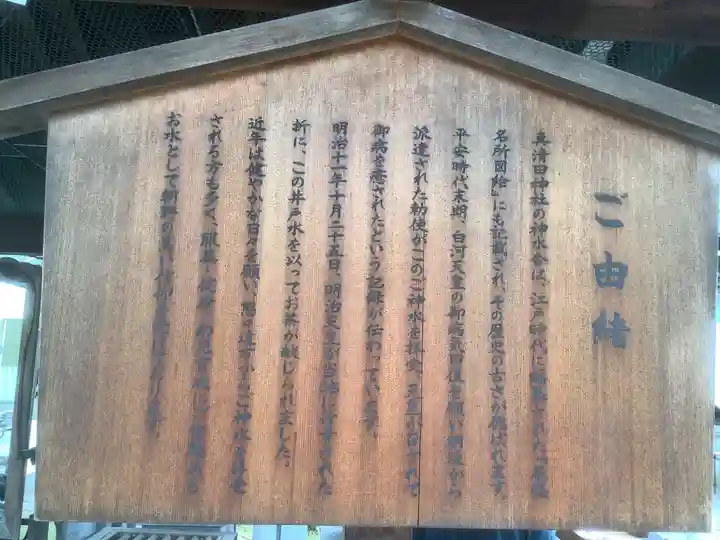 ご由緒
真清田神社の神水舎は、江戸時代に
名所図絵』にも記載され、その歴史の古さが偲ばれます。
平安時代末期、白河天皇の御病気回復を願い朝廷から
派遣された勅使がこのご神水を
御病を癒されたという記録が伝わっています。
明治十一年十月二十五日、明治天皇が当地に された
折に、この井戸水を以ってお茶が献じられました。
近年は健やかな日々を願い、 ご神水を
される方も多く、
お水として